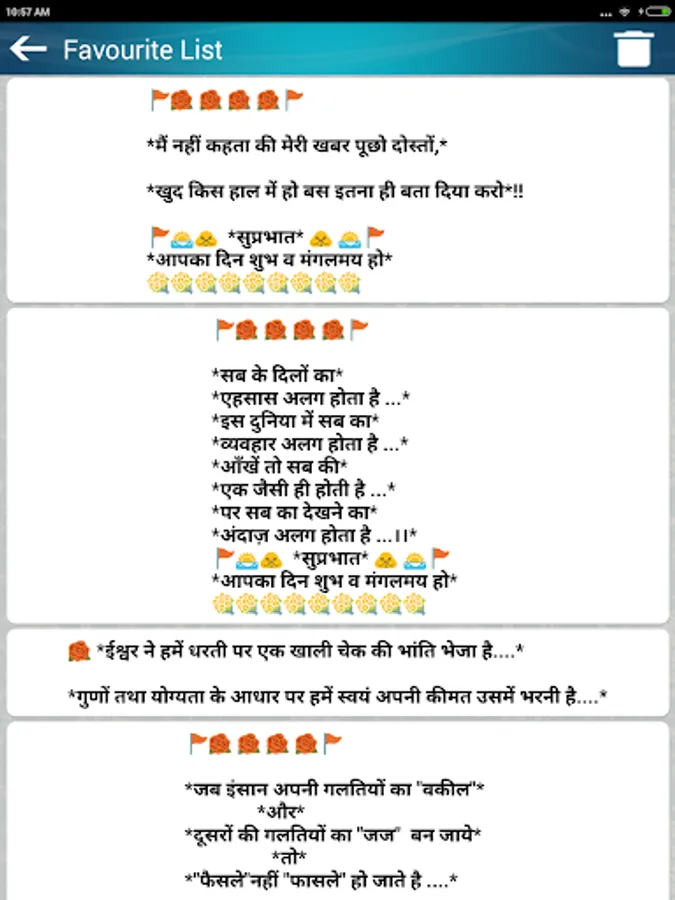 10:57 AM
Favourite List
*मैं नहीं कहता की मेरी खबर पूछो दोस्तों,*
*खुद किस हाल में हो बस इतना ही बता दिया करो*!!
*सुप्रभात*
*आपका दिन शुभ व मंगलमय हो*
*सब के दिलों का*
*एहसास अलग होता है ...*
*इस दुनिया में सब का*
*व्यवहार अलग होता है ...*
*आँखें तो सब की*
*एक जैसी ही होती है ...*
*पर सब का देखने का*
*अंदाज़ अलग होता है ...।।*
*सुप्रभात*
*आपका दिन शुभ व मंगलमय हो*
*ईश्वर ने हमें धरती पर एक खाली चेक की भांति भेजा है....*
*गुणों तथा योग्यता के आधार पर हमें स्वयं अपनी कीमत उसमें भरनी है....*
*जब इंसान अपनी गलतियों का "वकील"*
*और*
*दूसरों की गलतियों का "जज"  बन जाये*
*तो*
*"फैसले"नहीं "फासले" हो जाते है ....*